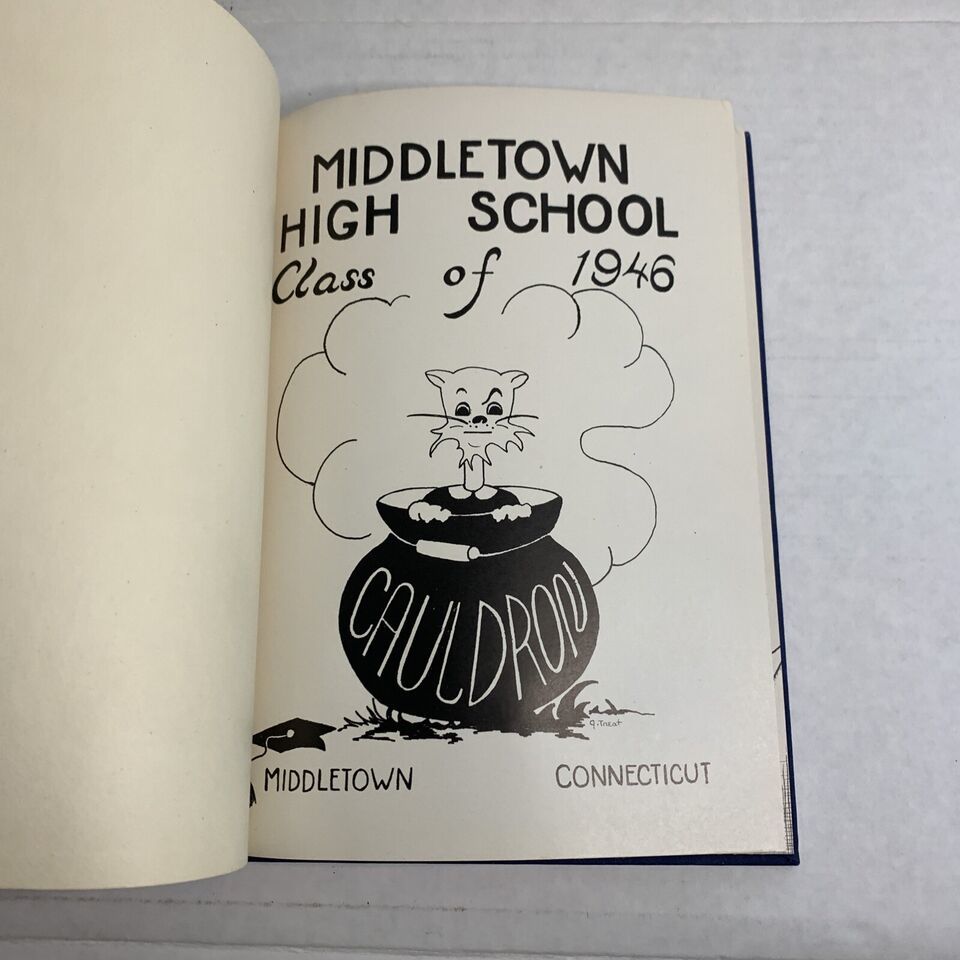 MIDDLETOWN
HIGH SCHOOL
Class of 1946
CAULDRON
J. Treat
MIDDLETOWN CONNECTICUT